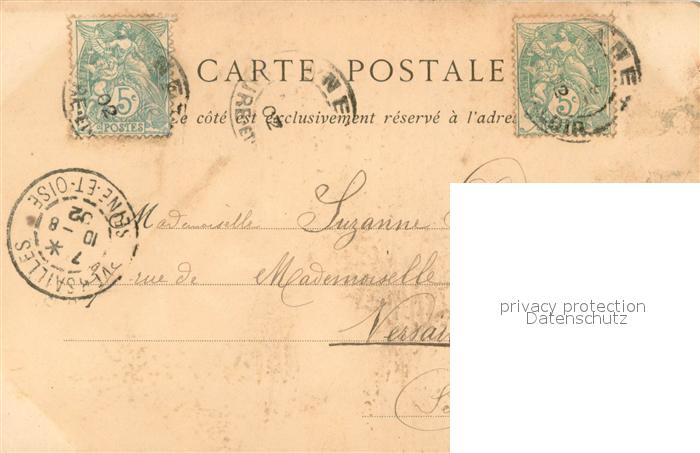 CARTE POSTALE
Ce côté est exclusivement réservé à l'adres
5c
POSTES
5c
02
02
VERSAILLES
SEINE-ET-OISE
7
10 - 8
02
Mademoiselle Suzanne
rue de Mademoiselle
Versai
privacy protection
Datenschutz